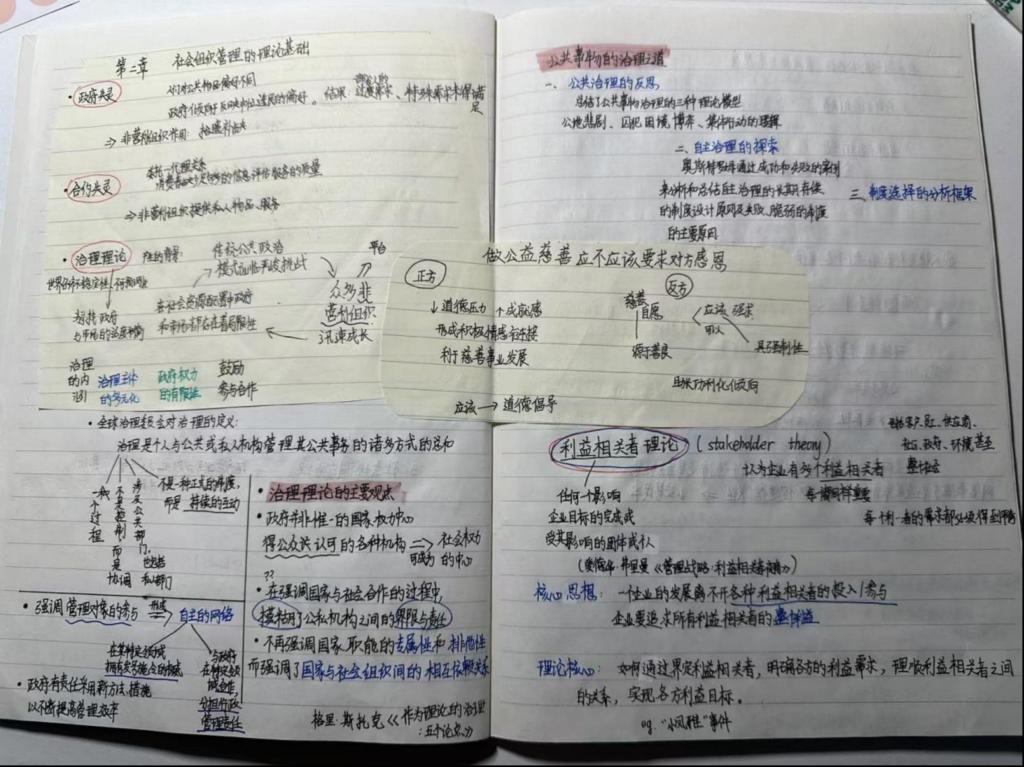 第二章 社会组织管理的理论基础
·政府失灵
人们对公共物品偏好不同
政府仅取决于反映中位选民的偏好。结果:过度需求、特殊需求未得满足
⇒非营利组织作用:拾遗补缺
·合约失灵
委托—代理关系
消费者缺少足够的信息评估服务的质量
⇒非营利组织提供私人物品、服务
·治理理论
产生的背景
传统公共政治
模式面临严峻挑战
平台
众多非
营利组织
迅速成长
在社会资源配置中政府
和市场都存在着局限性
与市场的
治理
的内
涵
治理主体
的多元化
政府权力
的有限性
鼓励
参与合作
·全球治理委员会对治理的定义:
治理是个人与公共或私人机构管理其公共事务的诸多方式的总和
一种不过程
不是控制而是协调
涉及公共部门,也包括私部门
不是一种正式的制度,
而是 持续的互动
·治理理论的主要观点
·政府并非惟一的国家权力中心
得公众认可的各种机构 ⇒ 社会权力
可成为 的中心
??
·在强调国家与社会合作的过程中,
模糊了公私机构之间的界限与责任
·不再强调国家职能的专属性和排他性
而强调了国家与社会组织间的相互依赖关系
·强调管理对象的参与
形成
自主的网络
在某种定领域
与政府
在特定领域
合作,
分担行政
管理责任
·政府有责任采用新方法、措施
以不断提高管理效率
格里·斯托克《作为理论的治理
:五个论点》
公共事物的治理之道
一、公共治理的反思
总结了公共事物治理的三种理论模型
公地悲剧、囚犯困境博弈、集体行动的逻辑
二、自主治理的探索
奥斯特罗姆通过成功和失败的案例
来分析和总结自主治理的长期存续
的制度设计原则及失败、脆弱的制度
的主要原因
三、制度选择的分析框架
做公益慈善应不应该要求对方感恩
正方
↓道德压力 ↑成就感
形成积极情感连接
利于慈善事业发展
反方
慈善
自愿
源于善良
应该 强求
可以
具强制性
且被功利化倾向
应该→道德倡导
利益相关者理论 (stakeholder theory)
任何一个影响
企业目标的完成或
受其影响的团体或个人
(爱德华·弗里曼《管理战略:利益相关者方法》)
认为企业有多个利益相关者
每个都同样重要
客户、员工、供应商、
社区、政府、环境甚至
整个社会
核心思想: 一个企业的发展离不开各种利益相关者的投入/参与
企业要追求所有利益相关者的整体利益
理论核心: 如何通过界定利益相关者,明确各方的利益需求,理顺利益相关者之间
的关系,实现各方利益目标。
eg. “小凤雅”事件